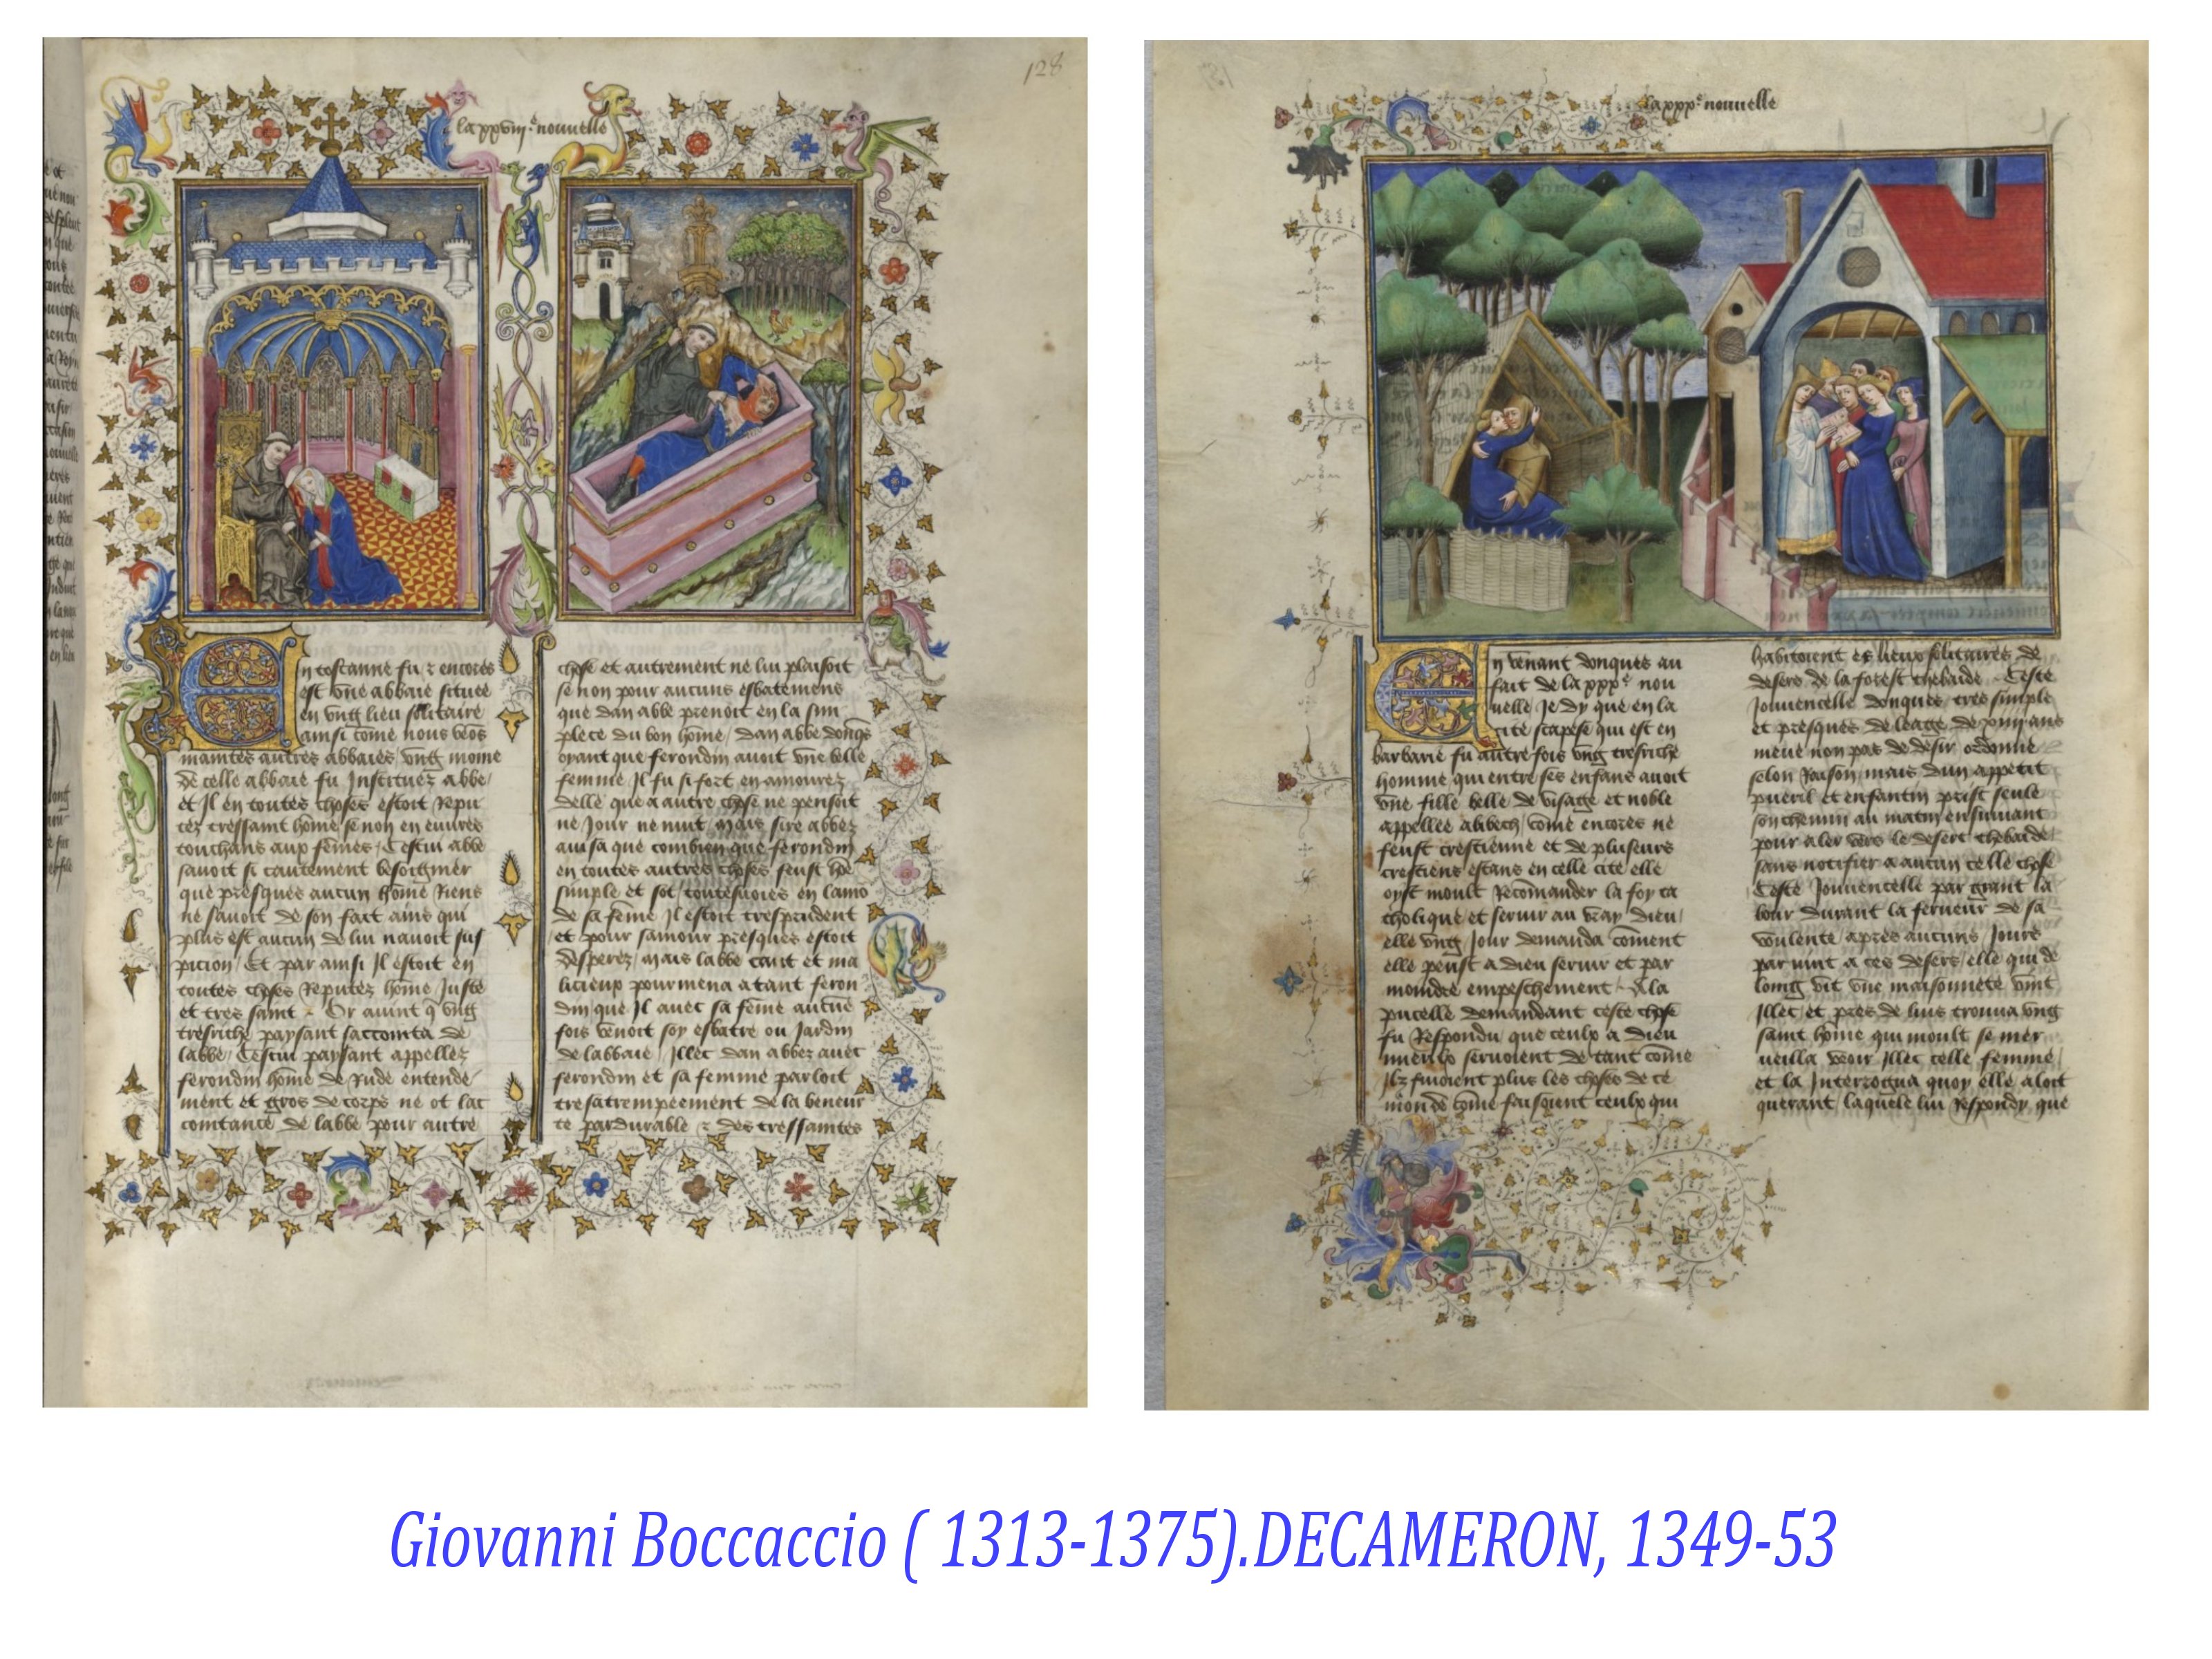 128
la xxviij.e nouuelle
En toscanne fu & encores
est vne abbaie situee
en vng lieu solitaire
ainsi cōme nous veōs
maintes autres abbaies vng moine
de celle abbaie fu Instituez abbe/
et Il en toutes choses estoit Repu
tez tressaint hōme se non en euures
touchans aux fēmes/ Cestui abbe
sauoit si cautement besoigner
que presques aucun hōme Riens
ne sauoit de son fait ains qui
plus est aucun de lui nauoit sus
picion/ Et par ainsi Il estoit en
toutes choses Reputez hōme Juste
et tres saint / Or auint q̄ vng
tresriche paysant saccointa de
labbe/ Cestui paysant appellez
ferondin hōme de Rude entende/
ment et gros de corps ne ot lac
cointance de labbe pour autre
chose et autrement ne lui plaisoit
se non pour aucuns esbatemens
que dan abbe prenoit en la sim
plece du bon hōme/ dan abbe donq̄s
oyant que ferondin auoit vne belle
femme Il fu si fort enamourez
delle que a autre chose ne pensoit
ne Jour ne nuit mais sire abbez
auisa que combien que ferondin
en toutes autres choses feust hōe
simple et sot/ toutesuoies en lamo
de sa fēme Il estoit tresprudent
et pour samour presques estoit
desperez/ mais labbe caut et ma
licieux pourmena a tant feron
din que Il auec sa fēme aucūe
fois venoit soy esbatre ou Jardin
de labbaie/ Illec dan abbez auec
ferondin et sa femme parloit
tresatrempeement de la beneur
te pardurable & des tressaintes
la xxx.e nouuelle
En venant donques au
fait de la xxx.e nou
uelle/ Je dy que en la
cite scapese qui est en
barbarie fu autre fois vng tresriche
homme qui entre ses enfans auoit
vne fille belle de visage et noble
appellee abbech/ cōme encores ne
feust crestienne et de pluseurs
crestiens estans en celle cite elle
oyst moult Recōmander la foy ca
tholique et seruir au vray dieu/
elle vng Jour demanda cōment
elle peust a dieu seruir et par
moindre empeschement / A la
pucelle demandant ceste chose
fu Respondu que ceulx a dieu
mieulx seruoient de tant cōme
Ilz fuioient plus les choses de ce
monde cōme faisoient ceulx qui
habitoient es lieux solitaires de
desers de la forest thebaide / Ceste
Jouuencelle donques tres simple
et presques de leage de xiiij ans
meue non pas de desir ordonne
selon Raison/ mais dun appetit
pueril et enfantin prist seule
son chemin au matin ensuiuant
pour aler vers le desert thebaide
sans notifier a aucun celle chose
Ceste Jouuencelle par grant la
bour durant la ferueur de sa
voulente/ apres aucuns Jours
paruint a ces desers/ elle qui de
loing vit vne maisonnete vint
Illec et pres de luis trouua vng
saint hōme qui moult se mer
ueilla veoir Illec celle femme/
et la Interrogua quoy elle aloit
querant/ laquele lui Respondy que
Giovanni Boccaccio ( 1313-1375).DECAMERON, 1349-53